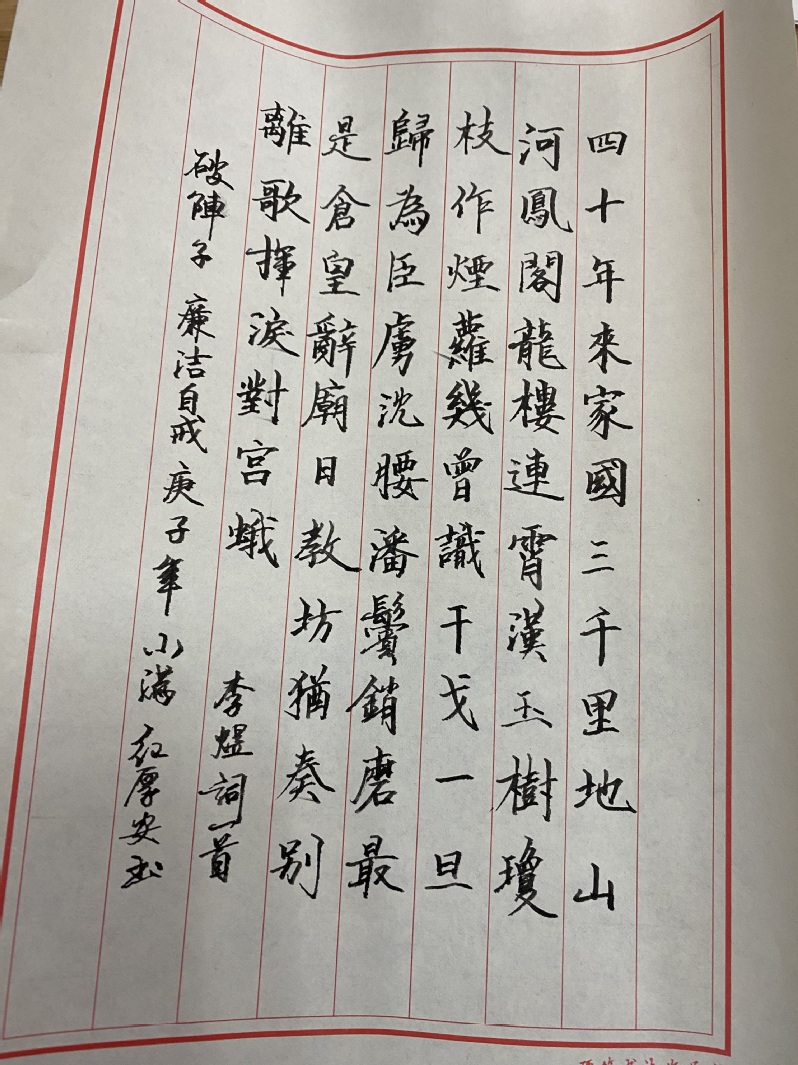 四十年來家國三千里地山
河鳳閣龍樓連霄漢玉樹瓊
枝作煙蘿幾曾識干戈一旦
歸為臣虜沈腰潘鬢銷磨最
是倉皇辭廟日教坊猶奏别
離歌揮淚對宮蛾
李煜詞一首
破陣子 廉洁自戒 庚子年 小满 厚安